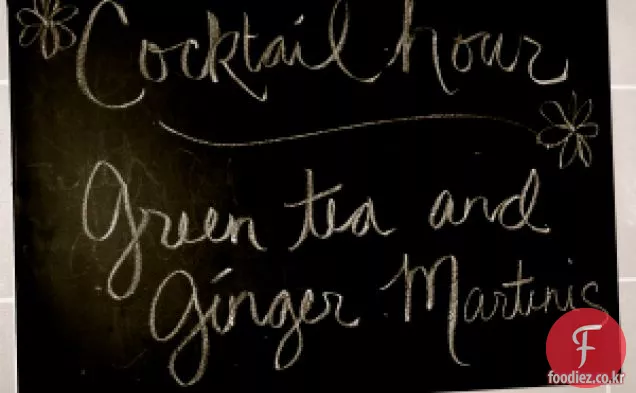 Cocktail hour
Green tea and
Ginger Martinis
F
foodiez.co.kr